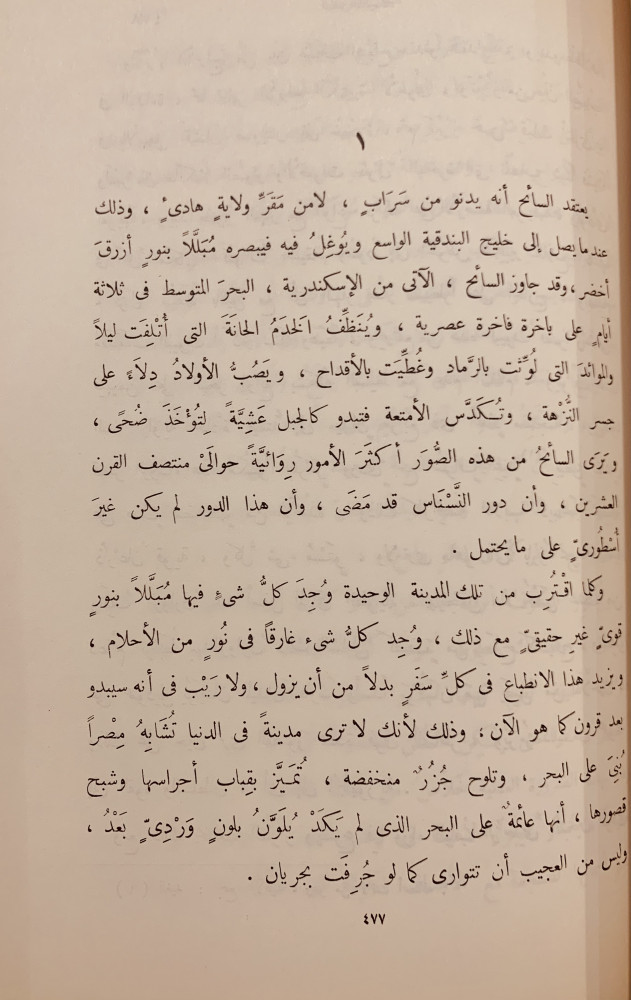 ١
يعتقد السائح أنه يدنو من سَرَابٍ ، لامن مَقَرِّ ولايةٍ هادىءٍ ، وذلك
عندما يصل إلى خليج البندقية الواسع ويُوغِلُ فيه فيبصره مُبَلَّلاً بنورٍ أزرقَ
أخضر ، وقد جاوز السائح ، الآتى من الإسكندرية ، البحرَ المتوسط فى ثلاثة
أيامٍ على باخرة فاخرة عصرية ، ويُنَظِّفُ الخدَمُ الحانَةَ التى أُتْلِفَت ليلاً
والموائدَ التى لُوِّنت بالرَّماد وغُطِّيَت بالأقداح ، ويَصُبُّ الأولادُ دِلَاءً على
جسر النُّزْهة ، وتُكَدَّس الأمتعة فتبدو كالجبل عَشِيَّةً لِتُؤْخَذَ ضُحًى ،
ويَرَى السائحُ من هذه الصُّوَر أكثَرَ الأمور رِوَائيَّةً حوالَىْ منتصف القرن
العشرين ، وأن دور النَّسْنَاس قد مَضَى ، وأن هذا الدور لم يكن غيرَ
أُسْطُورىٍّ على ما يحتمل .
وكلما اقْتُرِب من تلك المدينة الوحيدة وُجِدَ كلُّ شىءٍ فيها مُبَلَّلاً بنورٍ
قوىٍّ غيرِ حقيقىٍّ مع ذلك ، وُجِد كلُّ شىء غارقاً فى نُورٍ من الأحلام ،
ويزيد هذا الانطباع فى كلِّ سَفَرٍ بدلاً من أن يزول ، ولا رَيْب فى أنه سيبدو
بعد قرون كما هو الآن ، وذلك لأنك لا ترى مدينةً فى الدنيا تُشَابِهُ مِصْراً
بُنِىَ على البحر ، وتلوح جُزُرٌ منخفضة ، تُتَمَيَّزُ بِقِباب أجراسها وشبح
قصورها ، أنها عائمةٌ على البحر الذى لم يَكَدْ يُلَوَّنُ بلونٍ وَرْدِىٍّ بَعْدُ ،
وليس من العجيب أن تتوارى كما لو جُرِفَت بجريان .
٤٧٧